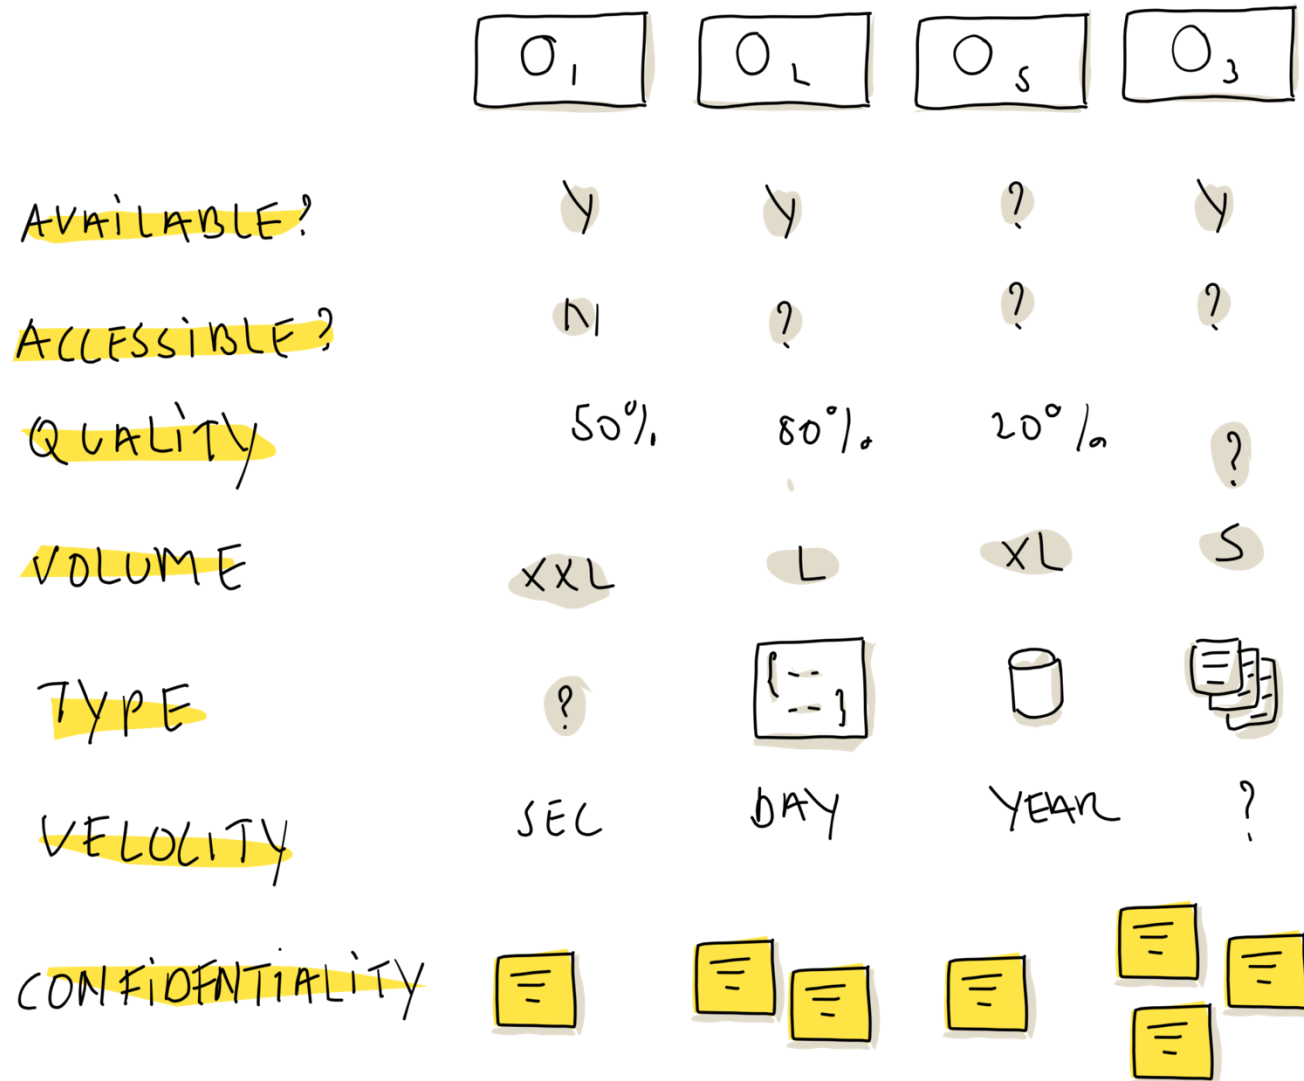 O1 OL OS O3
AVAiLABLE? Y Y ? Y
ACCESSiBLE? N ? ? ?
QUALiTY 50% 80% 20% ?
VOLUME XXL L XL S
TYPE ? {-- --}
VELOCITY SEC DAY YEAR ?
CONFiDENTiALiTY